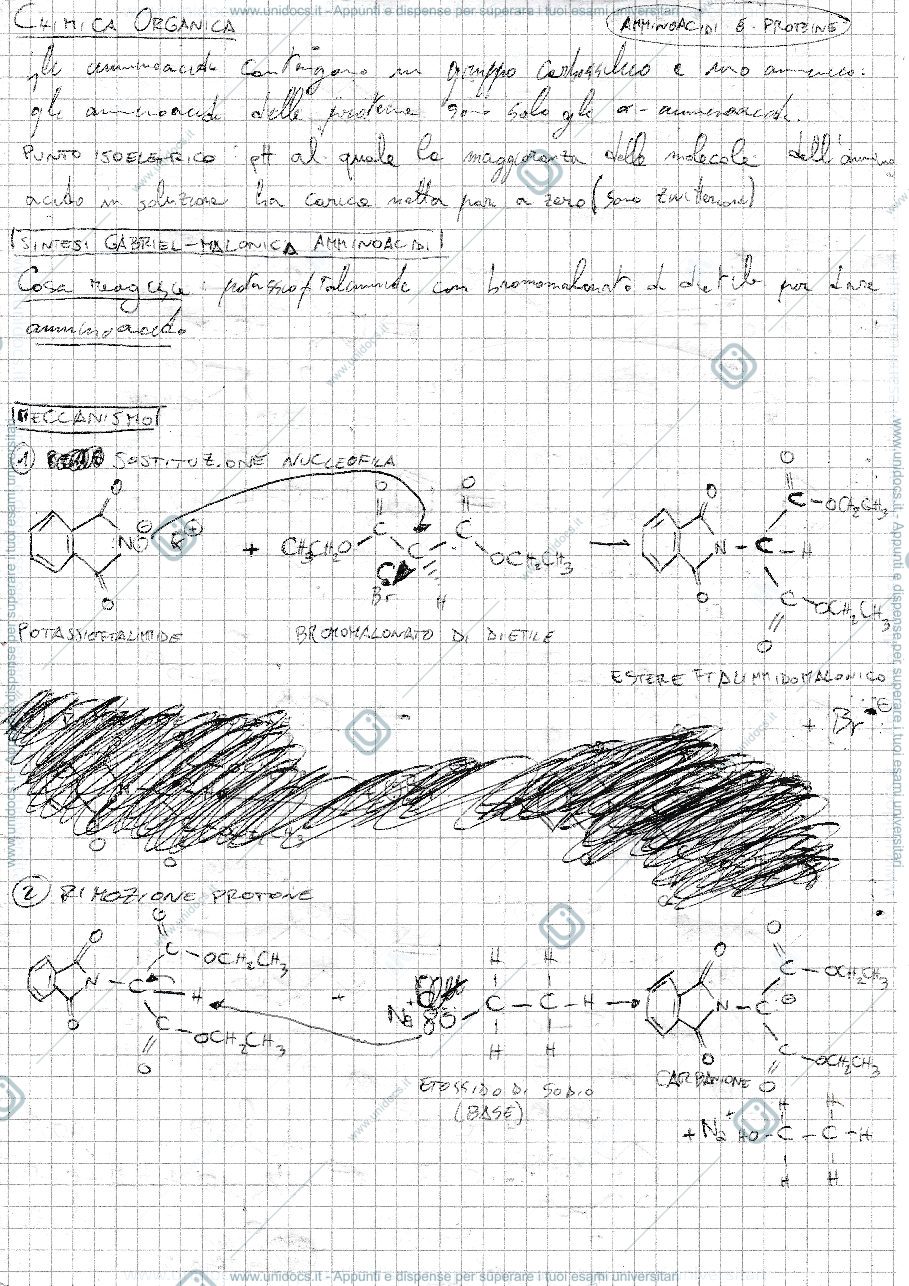 www.unidocs.it - Appunti e dispense per superare i tuoi esami universitari
CHIMICA ORGANICA
AMMINOACIDI E PROTEINE
gli amminoacidi contengono un gruppo carbossilico e uno amminico:
gli amminoacidi delle proteine sono solo gli α-amminoacidi.
PUNTO ISOELETTRICO: pH al quale la maggioranza delle molecole dell'ammino
acido in soluzione ha carica netta pari a zero (sono zwitterioni)
SINTESI GABRIEL-MALONICA AMMINOACIDI
Cosa reagisce: potassioftalimmide con bromomalonato di dietile per dare
amminoacido
MECCANISMO
1 SOSTITUZIONE NUCLEOFILA
O O O O O
N⊖ K⊕ + CH3CH2O C C C OCH2CH3 N - C - H C - OCH2CH3
Br H
O O C OCH2CH3 O
POTASSIOFTALIMIDE BROMOMALONATO DI DIETILE
ESTERE FTALIMMIDOMALONICO
+ Br⊖
2 RIMOZIONE PROTONE
O O C - OCH2CH3 H H O O C - OCH2CH3
N - C - H + Na+ O - C - C - H N - C⊖
O C - OCH2CH3 O H H O C - OCH2CH3 O
ETOSSIDO DI SODIO
(BASE)
CARBANIONE
H H
+ Na+ HO - C - C - H
H H
www.unidocs.it - Appunti e dispense per superare i tuoi esami universitari